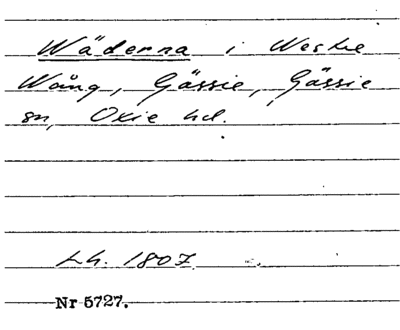 Wäderna i Westre
Wång, Gässie, Gässie
sn, Oxie hd.
Lh. 1807.
Nr 5727.